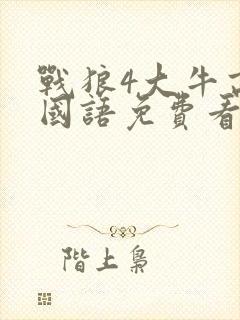 戰狼4大牛
國語免費看
階上梟